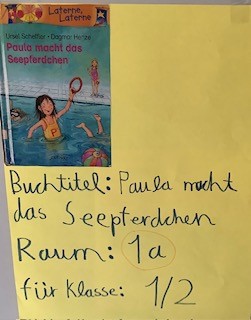 Laterne, Laterne
Ursel Scheffler · Dagmar Henze
Paula macht das
Seepferdchen
Buchtitel: Paula macht
das Seepferdchen
Raum: 1a
für Klasse: 1/2